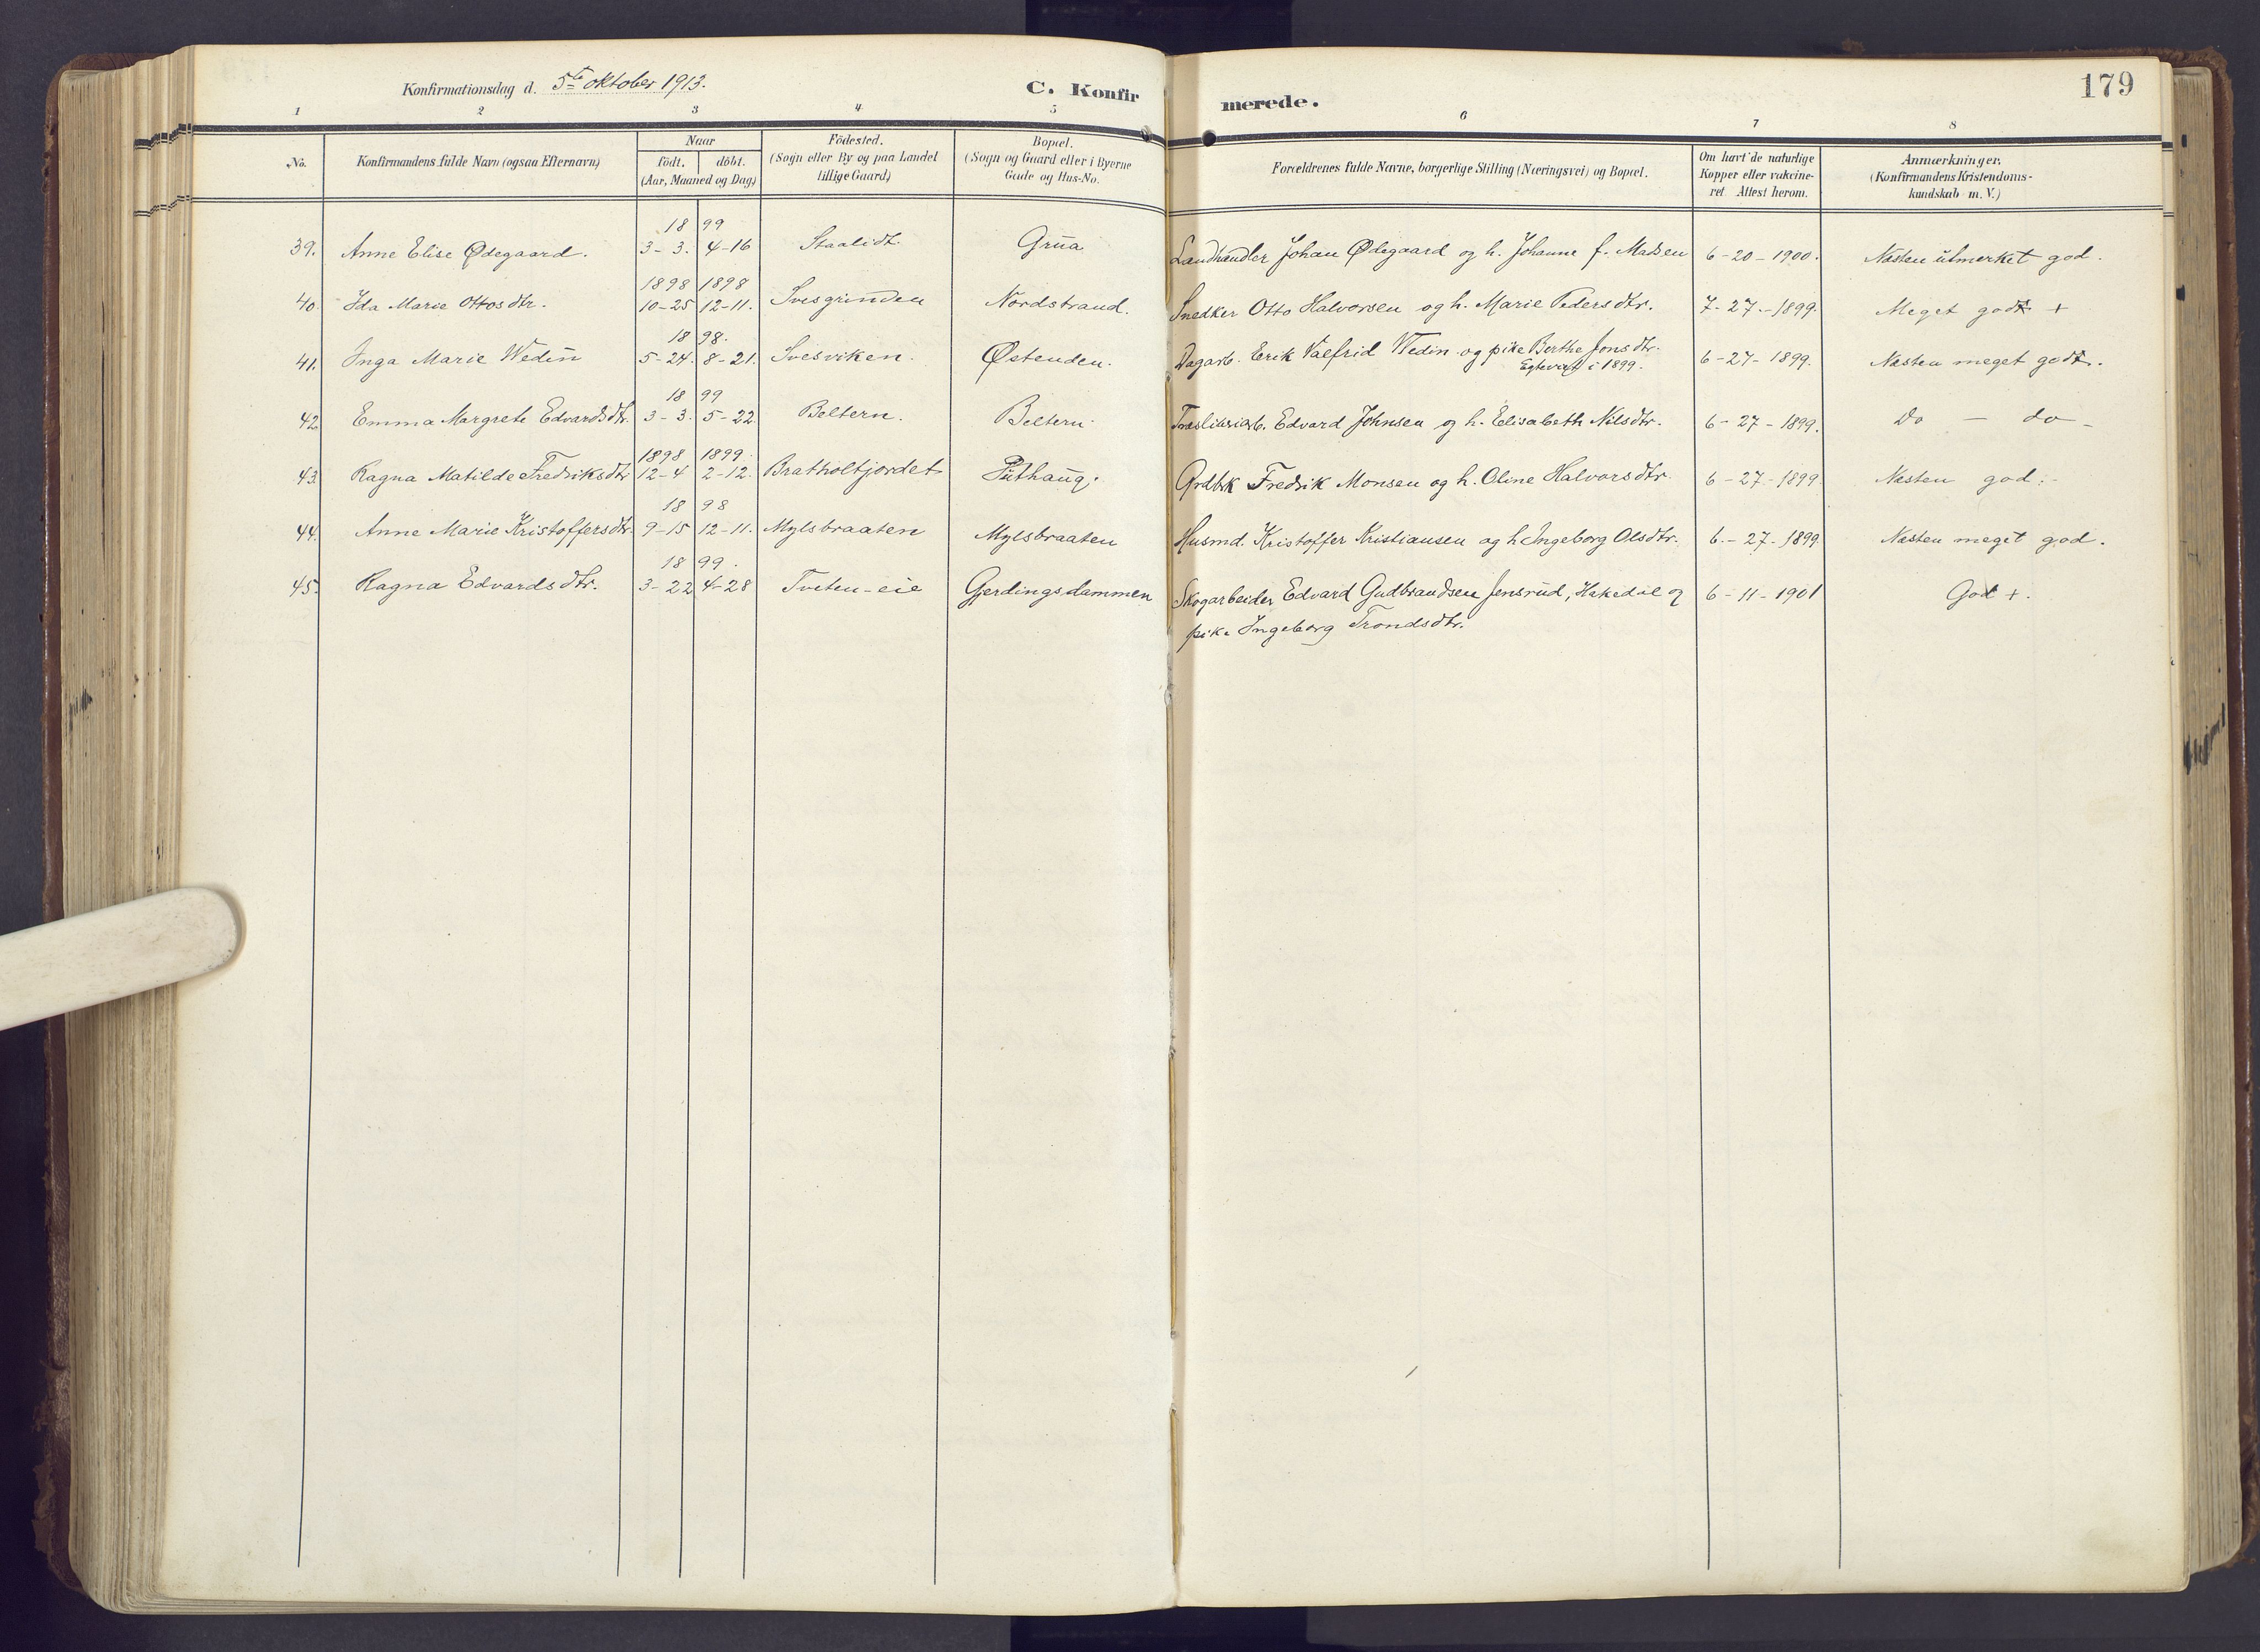 Konfirmationsdag d. 5te oktober 1913. C. Konfirmerede. 179
1 2 3 4 5 6 7 8
No. Konfirmandens fulde Navn (ogsaa Efternavn) Naar Födested. Bopæl. Forældrenes fulde Navne, borgerlige Stilling (Næringsvei) og Bopæl. Om havt de naturlige Anmærkninger.
födt. döbt. (Sogn eller By og paa Landet (Sogn og Gaard eller i Byerne Kopper eller vakcine- (Konfirmandens Kristendoms-
(Aar, Maaned og Dag) tillige Gaard) Gade og Hus-No. ret Attest herom. kundskab m. V.)
18 99
39. Anne Elise Ødegaard. 3-3. 4-16 Staalidt. Grua Landhandler Johan Ødegaard og h. Johanne f. Madsen 6-20-1900. Næsten utmerket god.
1898 1898
40. Ida Marie Ottosdtr. 10-25 12-11. Svesgrinden Nordstrand. Snedker Otto Halvorsen og h. Marie Pedersdtr. 7-27.-1899. Meget godt +
18 98.
41. Inga Marie Wedin 5-24. 8-21. Svesviken. Østenden. Dagarb. Erik Valfrid Wedin og pike Berthe Jonsdtr. 6-27-1899. Næsten meget godt.
Egteviet i 1899.
18 99
42. Emma Margrete Edvardsdtr. 3-3. 5-22 Beltern. Beltern. Edvard Johnsen og h. Elisabeth Nilsdtr. 6-27-1899. Do — do -
1898 1899.
43. Ragna Matilde Fredriksdtr 12-4 2-12. Bratholtjordet Puthaug. Grdbk Fredrik Monsen og h. Oline Halvorsdtr. 6-27-1899. Næsten god.-
18 98
44. Anne Marie Kristoffersdtr. 9-15 12-11. Mylsbraaten Mylsbraaten Husmd. Kristoffer Kristiansen og h Ingeborg Olsdtr. 6.-27-1899 Næsten meget god.
18 99.
45. Ragna Edvardsdtr. 3-22 4-28 Tveten-eie Gjerdingsdammen Skogarbeider Edvard Gudbrandsen Jensrud, Hakedal og 6-11-1901 God +.
pike Ingeborg Trondsdtr.